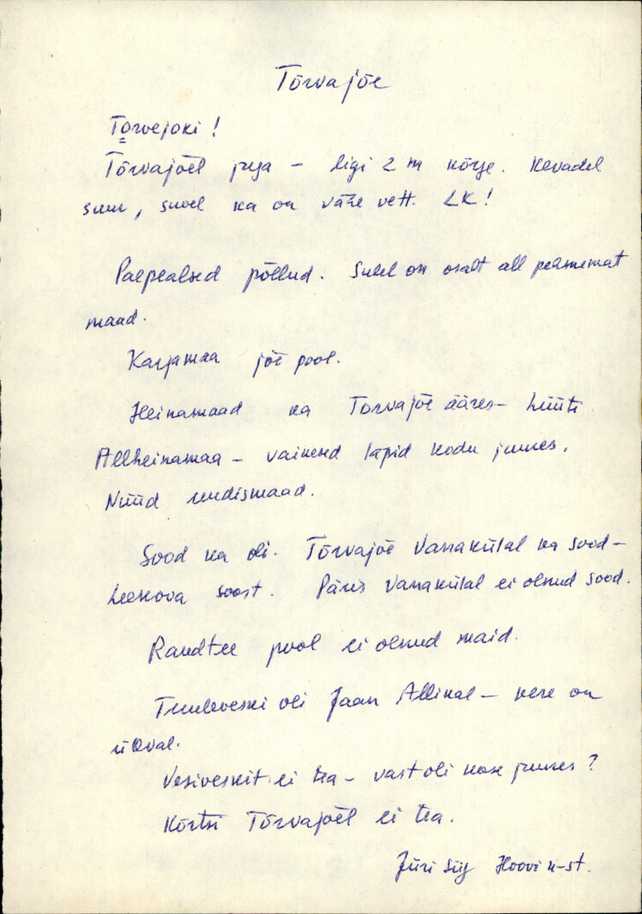 Tõrvajõe
Torvejoki!
Tõrvajõel juga – ligi 2 m kõrge. Kevadel
suur, suvel ka on vähe vett. LK!
Paepealsed põllud. Sulel on osalt all peenemat
maad.
Karjamaa jõe pool.
Heinamaad ka Torvajõe ääres – hüüti
Allheinamaa – vaikesed lapid kodu juures.
Nüüd uudismaad.
Sood ka oli. Tõrvajõe Vanakülal ka sood –
Leekova soost. Päris Vanakülal ei olnud sood.
Raudtee pool ei olnud maid.
Tuuleveski oli Jaan Allikal – kere on
üleval.
Vesiveskit ei tea – vast oli kose juures?
Kõrtsi Tõrvajõel ei tea.
Jüri Siig Hoovi k-st.